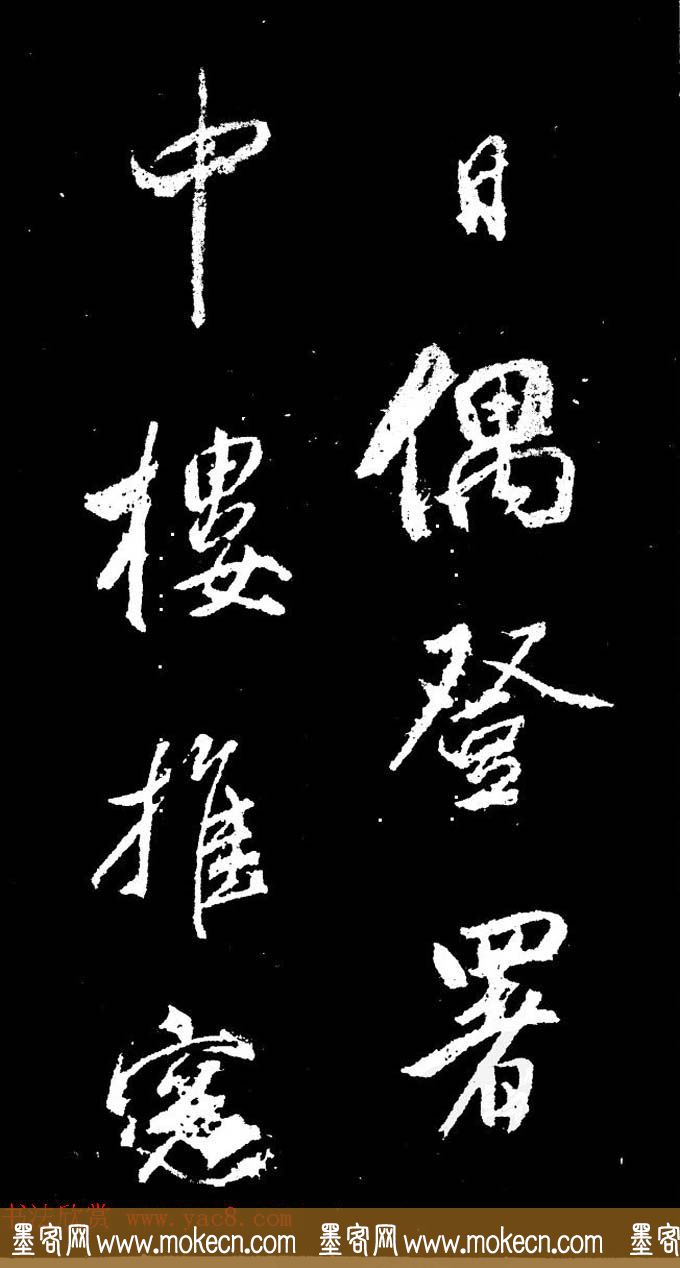 日偶登署
中樓推窓
书法欣赏 www.yac8.com
墨客网 www.mokecn.com 墨客网 www.mokecn.com